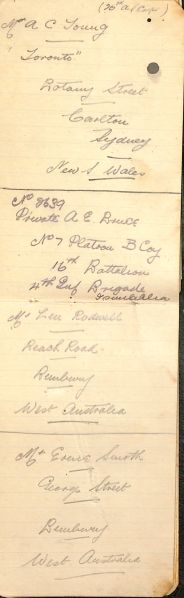 Mrs A C Young
"Toronto"
Botany Street
Carlton
Sydney
New S Wales
No 8639
Private A E Bruce
No 7 Platoon B Coy
16th Battalion
4th Inf Brigade
Mrs Len Rodwell
Beach Road
Bunbury
West Australia
Mrs Smith
George Street
Bunbury
West Australia